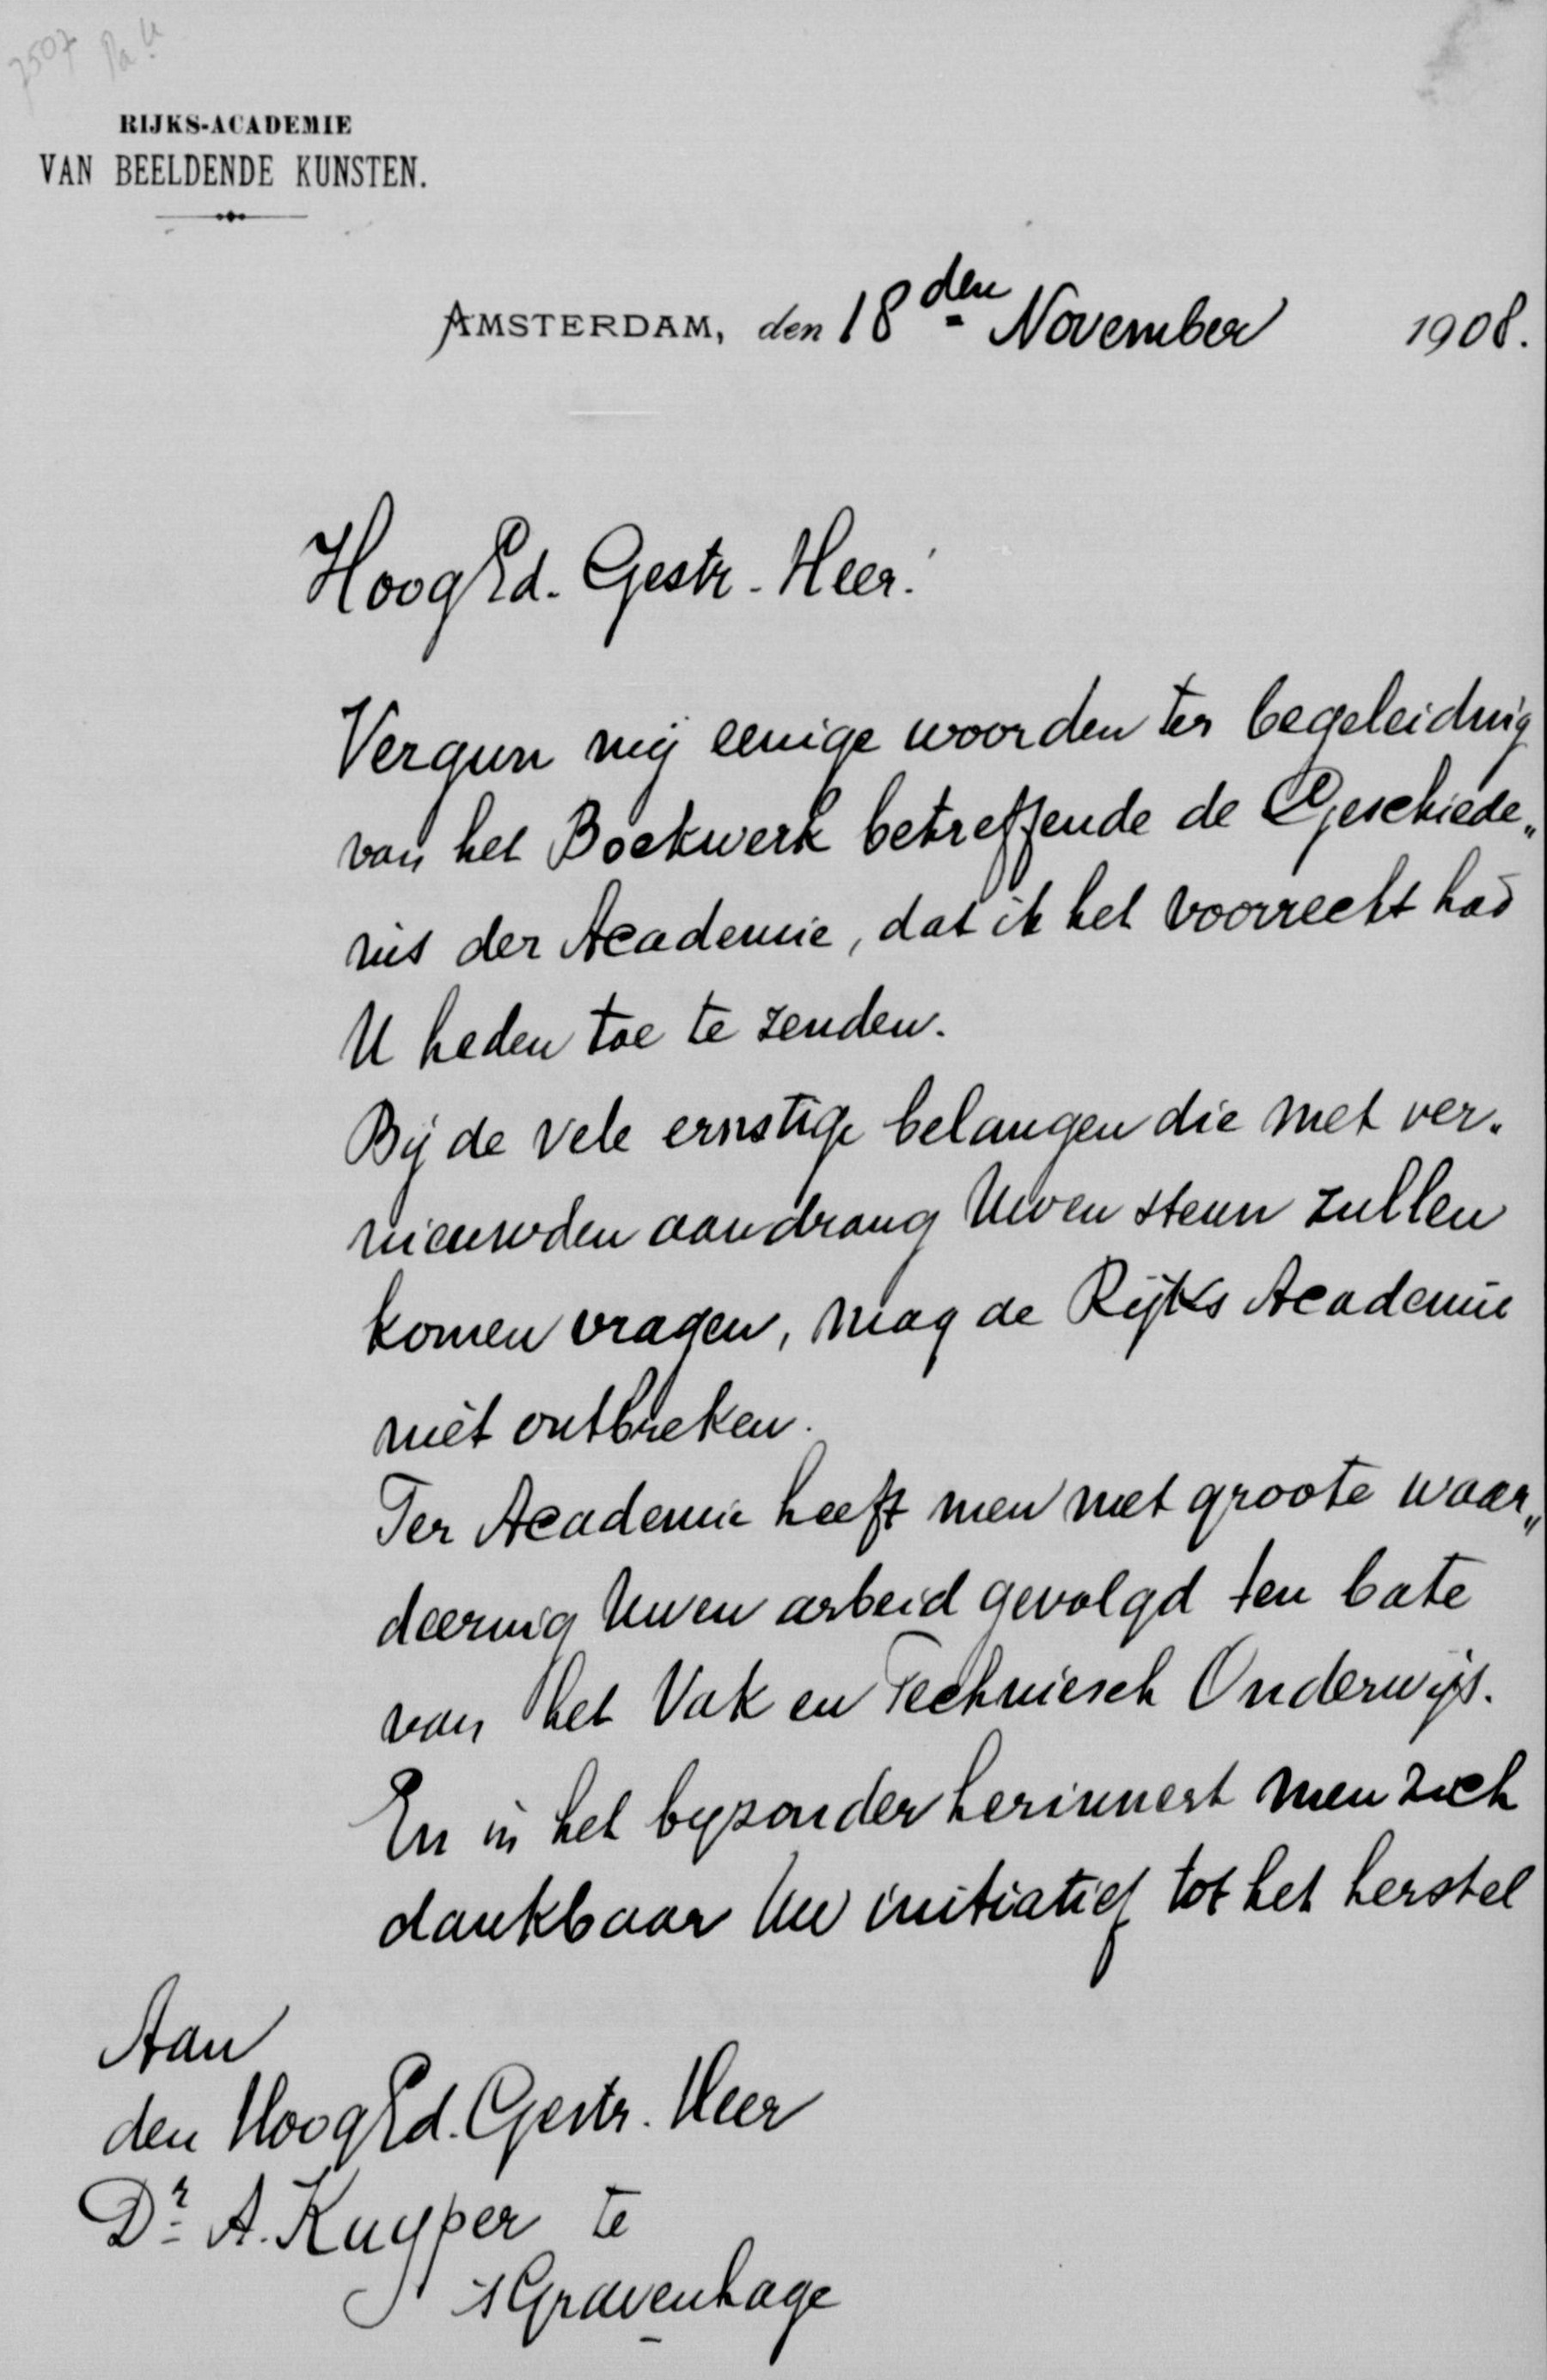 7507
RIJKS-ACADEMIE
VAN BEELDENDE KUNSTEN.
AMSTERDAM, den 18den November 1908.
HoogEd. Gestr. Heer!
Vergun mij eenige woorden ter begeleiding
van het Boekwerk betreffende de Geschiede„
nis der Academie, dat ik het voorrecht had
U heden toe te zenden.
Bij de vele ernstige belangen die met ver-
nieuwden aandrang Uwen steun zullen
komen vragen, mag de Rijks Academie
niet ontbreken.
Ter Academie heeft men met groote waar„
deering Uwen arbeid gevolgd ten bate
van het Vak en Techniesch Onderwijs.
En in het byzonder herinnert men zich
dankbaar Uw initiatief tot het herstel
Aan
den HoogEd. Gestr. Heer
Dr A. Kuyper te
s Gravenhage